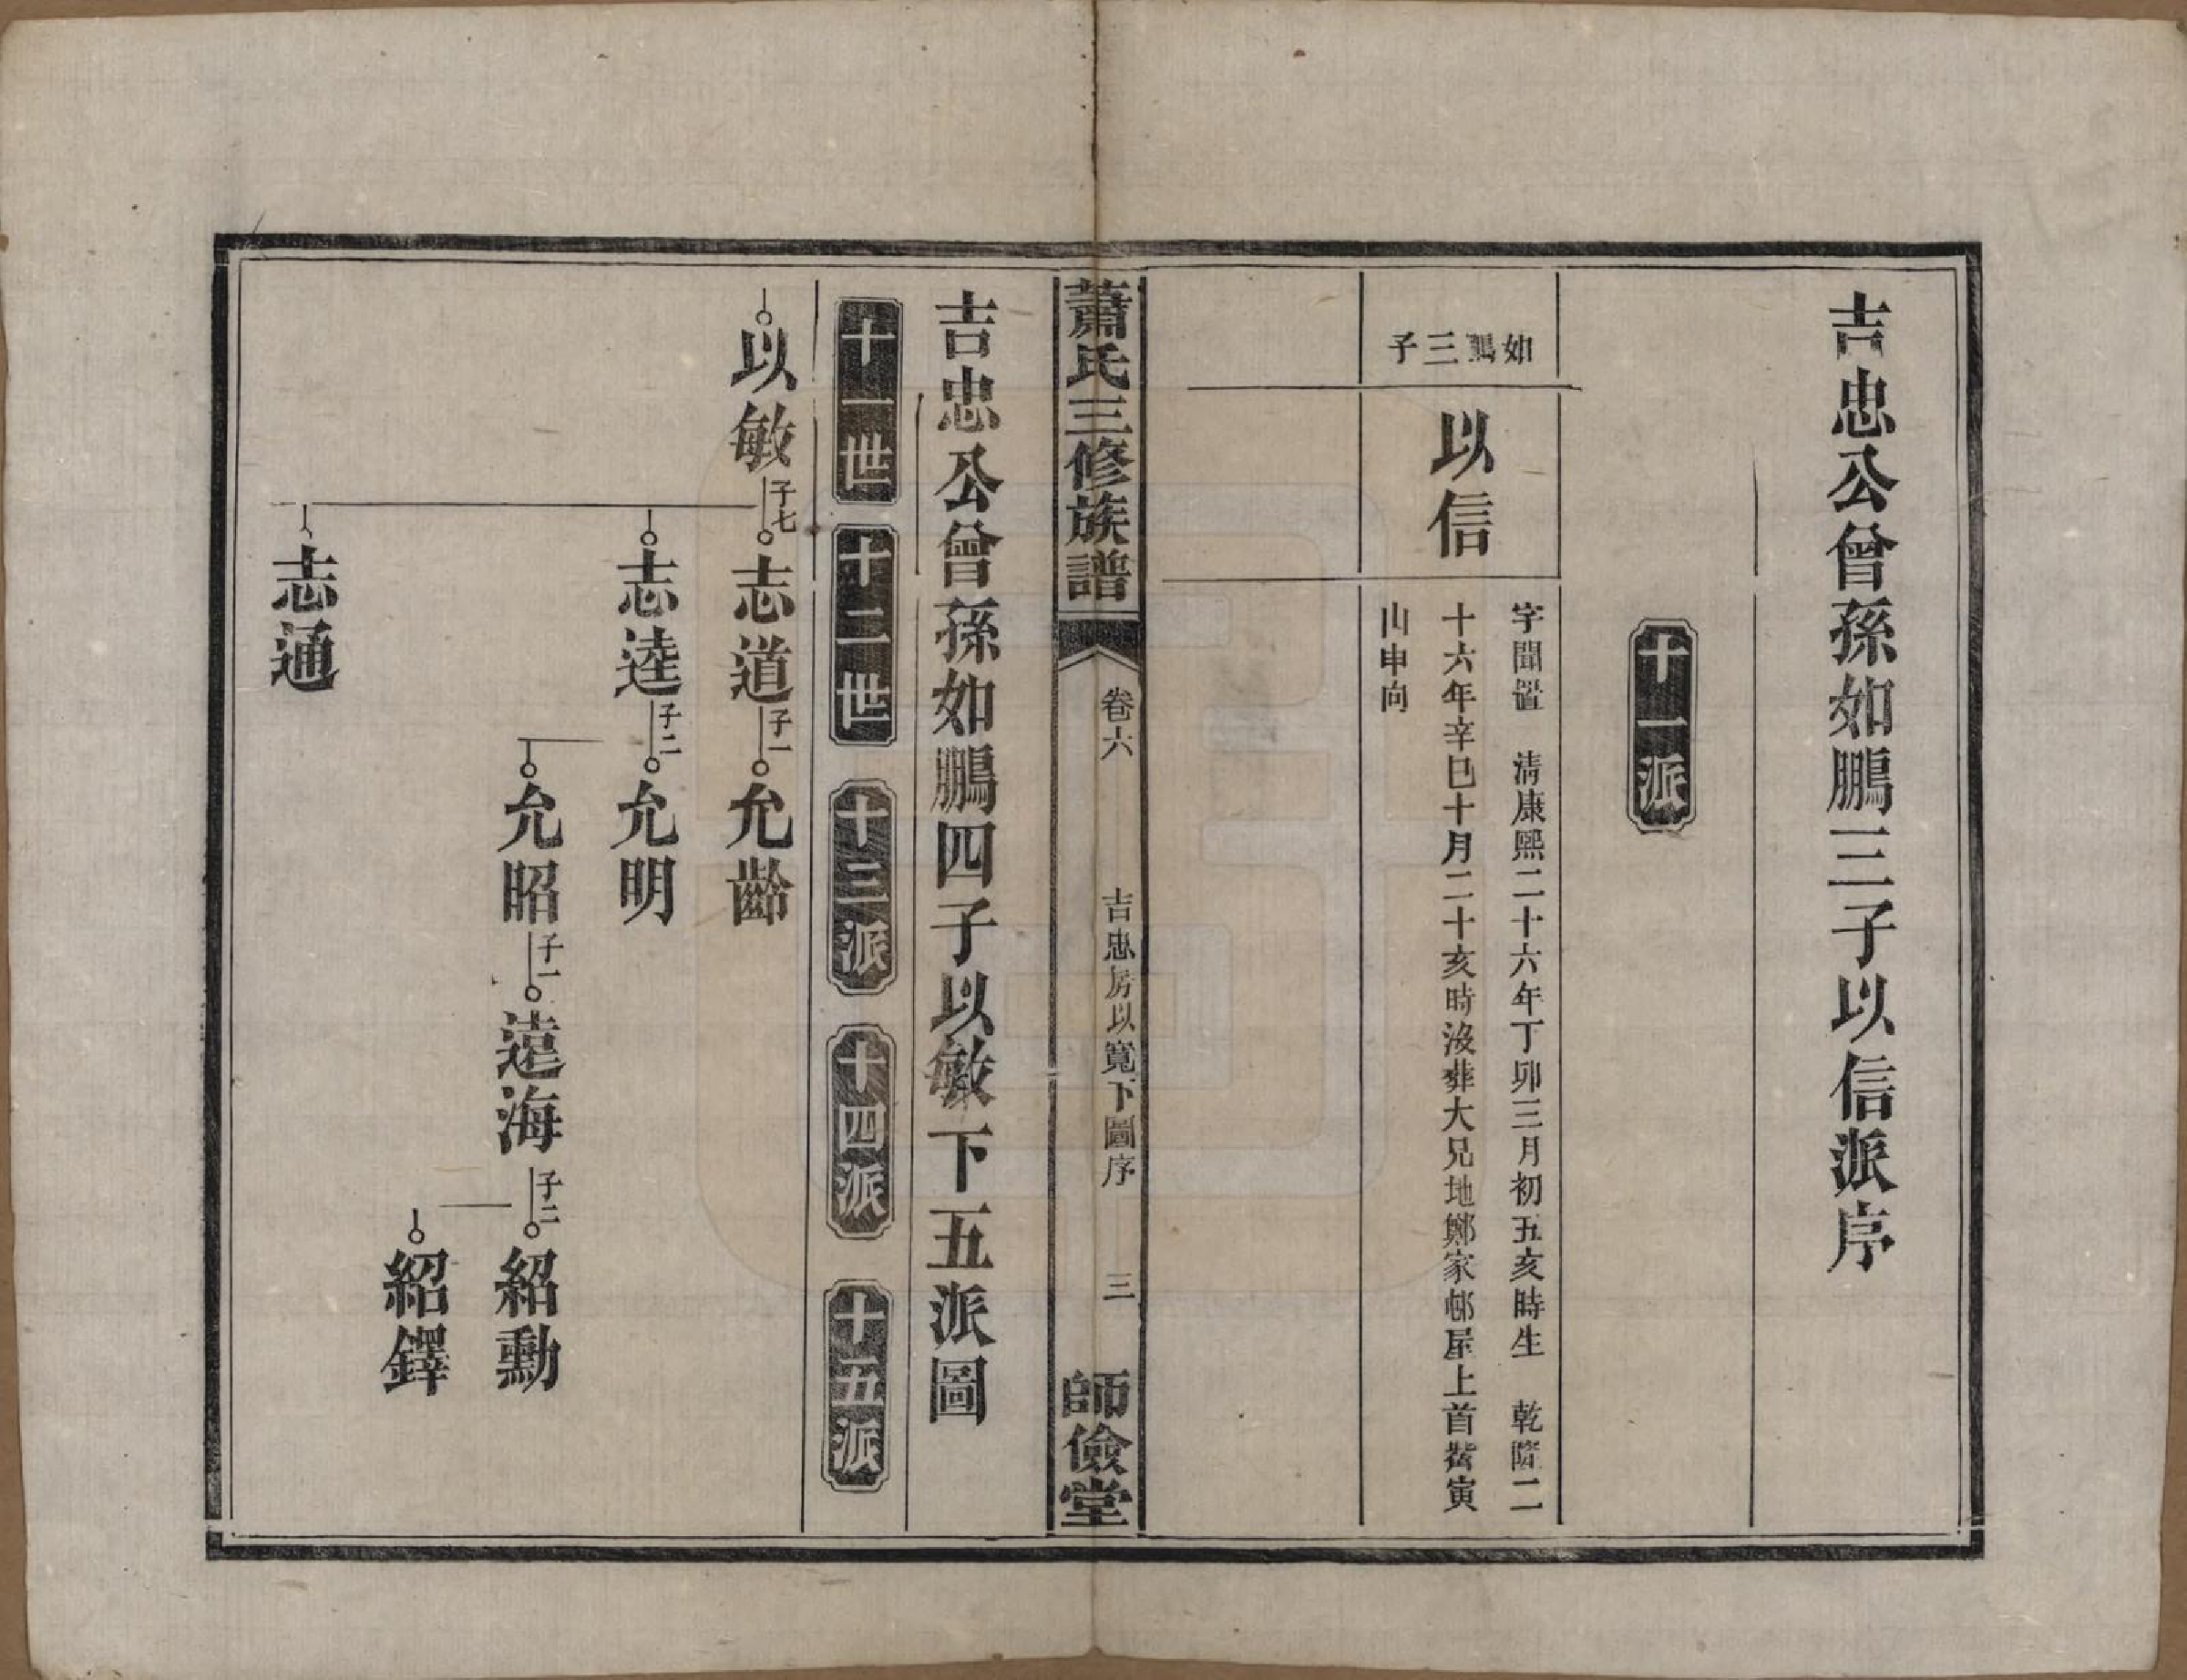 吉忠公曾孫如鵬三子以信派序
十一派
如鵬三子
以信
字聞馨　清康熙二十六年丁卯三月初五亥時生　乾隆二
十六年辛巳十月二十亥時沒葬大兄地鄭家邨屋上首嵅寅
山申向
蕭氏三修族譜
卷六
吉忠房以寬下圖序
三
師儉堂
吉忠公曾孫如鵬四子以敏下五派圖
十一世
十二世
十三派
十四派
十五派
以敏
子七
志道
子一
允齡
志逵
子二
允明
允昭
子一
遠海
子二
紹勳
紹鐸
志通